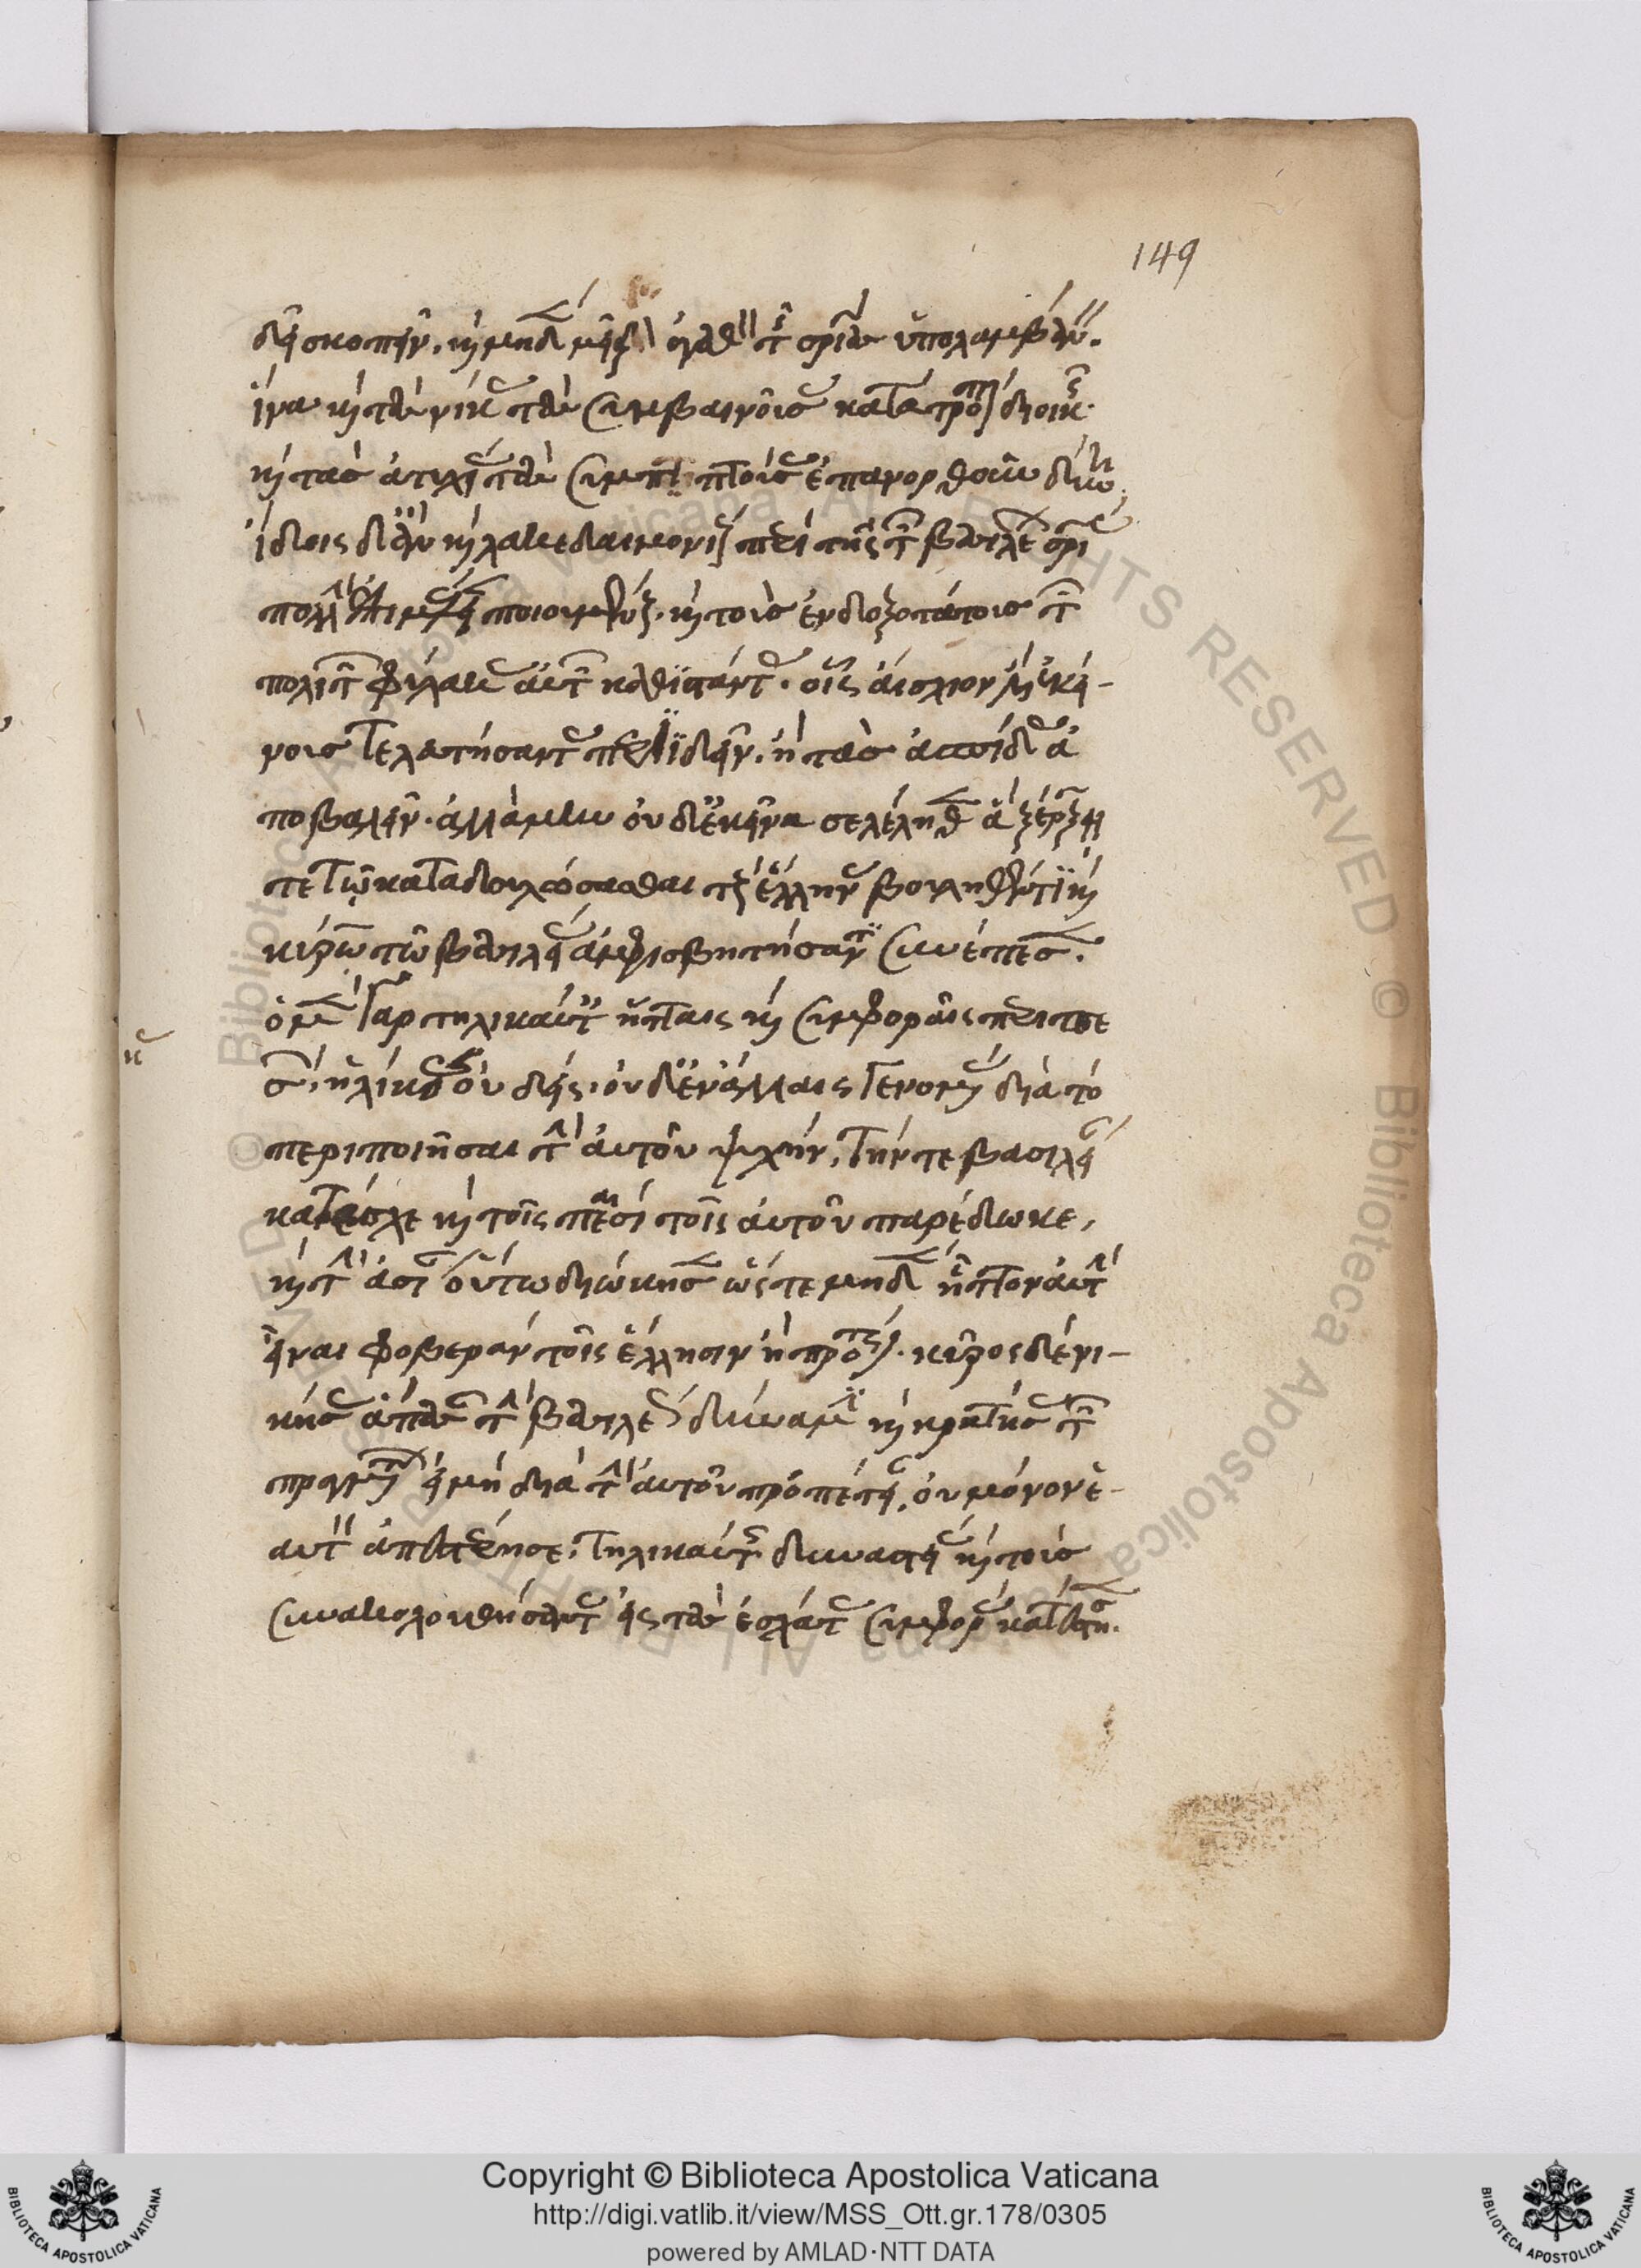 δεῖ σκοπεῖν, καὶ μηδὲν μεῖζον ἀγαθὸν τῆς σωτηρίας ὑπολαμβάνειν.
ἵνα καὶ τὰς νίκας τὰς συμβαινούσας κατὰ τρόπον διοικῇς.
καὶ τὰς ἀτυχίας τὰς συμπιπτούσας ἐπανορθοῦν δύνῃ.
ἴδοις δ' ἂν καὶ λακεδαιμονίους περὶ τῆς τῶν βασιλέων σωτηρίας
πολλὴν ἐπιμέλειαν ποιουμένους. καὶ τοὺς ἐνδοξοτάτους τῶν
πολιτῶν φύλακας αὐτῶν καθιστάντας. οἷς αἴσχιόν ἐστιν ἐκεί-
νους τελευτήσαντας περιϊδεῖν. ἢ τὰς ἀσπίδας ἀ
ποβαλεῖν. ἀλλὰ μὴν οὐδ' ἐκεῖνα σε λέληθεν ἃ ξέρξῃ
τε τῷ καταδουλώσασθαι τοὺς ἕλληνας βουληθέντι καὶ
κύρῳ τῷ βασιλείας ἀμφισβητήσαντι συνέπεσεν.
ὁ μὲν γὰρ τηλικαύταις ἥτταις καὶ συμφοραῖς περιπε
σὼν, ἡλίκας οὐδεὶς οὐδ' ἐν ἄλλαις γενομένας διὰ τὸ
περιποιῆσαι τὴν αὐτοῦ ψυχήν, τήν τε βασιλείαν
κατέσχε καὶ τοῖς παισὶ τοῖς αὐτοῦ παρέδωκε,
καὶ τὴν ἀσίαν οὕτω διώκησεν ὥστε μηδὲν ἧττον αὐτὴν
εἶναι φοβερὰν τοῖς ἕλλησιν ἢ πρότερον. κῦρος δὲ νι-
κήσας ἅπασαν τὴν βασιλέως δύναμιν καὶ κρατήσας τῶν
πραγμάτων εἰ μὴ διὰ τὴν αὐτοῦ προπέτειαν, οὐ μόνον ἑ-
αυτὸν ἀπεστέρησε, τηλικαύτης δυναστείας καὶ τοὺς
συνακολουθήσαντας εἰς τὰς ἐσχάτας συμφορὰς κατέστησεν.
149
Copyright © Biblioteca Apostolica Vaticana
http://digi.vatlib.it/view/MSS_Ott.gr.178/0305
powered by AMLAD·NTT DATA
BIBLIOTECA APOSTOLICA VATICANA
BIBLIOTECA APOSTOLICA VATICANA